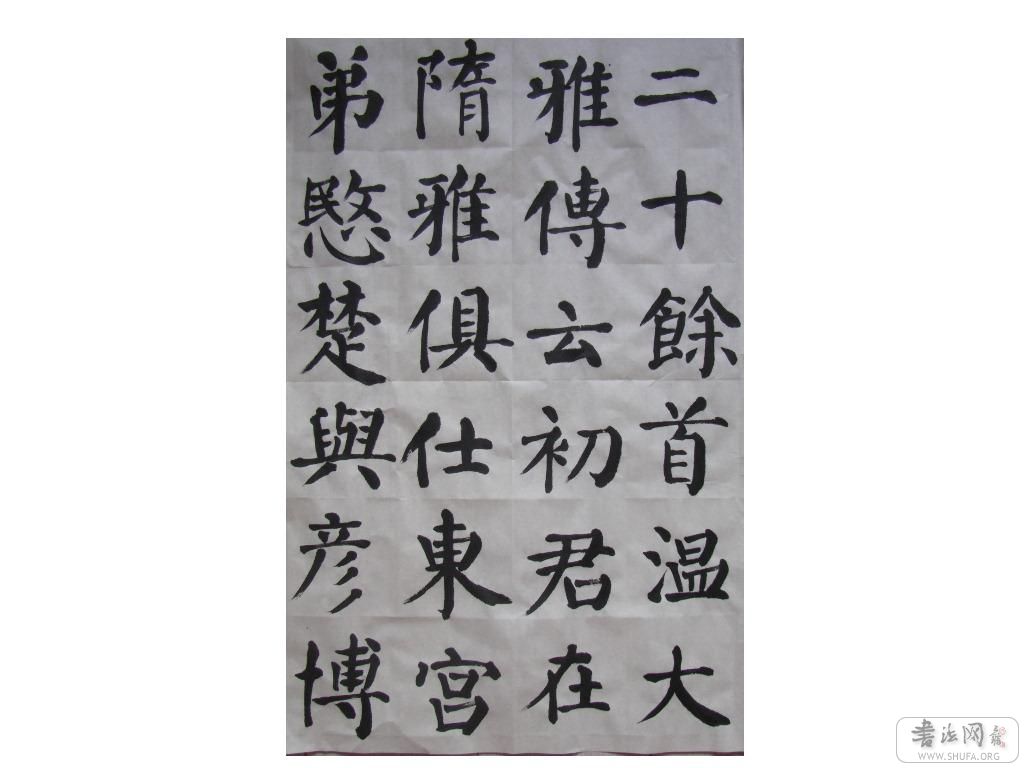 二十餘首温大
雅傳云初君在
隋雅俱仕東宮
弟愍楚與彦博
书法网
WWW.SHUFA.ORG